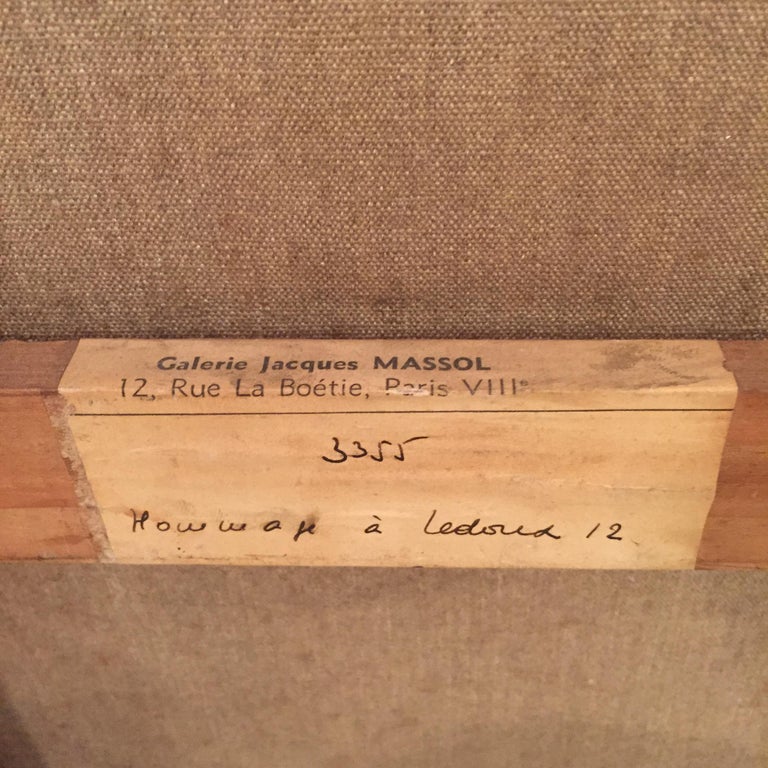 Galerie Jacques MASSOL
12, Rue La Boétie, Paris VIIIe
3355
Hommage à Ledoux 12